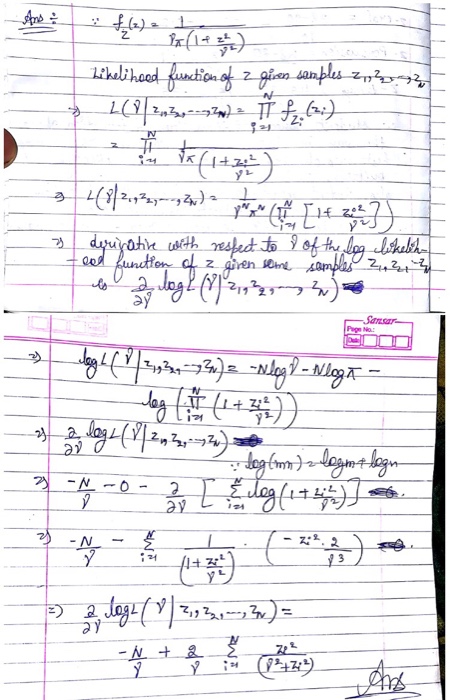 Ans ÷ ∵ f_Z(z) = 1 / (γπ(1 + z²/γ²))
Likelihood function of z given samples z₁, z₂, ---, z_N
⇒ L(γ | z₁, z₂, ---, z_N) = ∏_{i=1}^{N} f_{Z_i}(z_i)
= ∏_{i=1}^{N} 1 / (γπ(1 + z_i²/γ²))
⇒ L(γ | z₁, z₂, ---, z_N) = 1 / (γ^N π^N (∏_{i=1}^{N} [1 + z_i²/γ²]))
⇒ derivative with respect to γ of the log likelih-
-ood function of z given some samples z₁, z₂, -- z_N
is ∂/∂γ log L(γ | z₁, z₂, ---, z_N)
Sansar
Page No.:
Date
⇒ log L(γ | z₁, z₂, --, z_N) = -N log γ - N log π -
log(∏_{i=1}^{N} (1 + z_i²/γ²))
⇒ ∂/∂γ log L(γ | z₁, z₂, --, z_N)
∵ log(mn) = log m + log n
⇒ -N/γ - 0 - ∂/∂γ [∑_{i=1}^{N} log(1 + z_i²/γ²)]
⇒ -N/γ - ∑_{i=1}^{N} 1/(1 + z_i²/γ²) · (-z_i² · 2/γ³)
⇒ ∂/∂γ log L(γ | z₁, z₂, --, z_N) =
-N/γ + 2/γ ∑_{i=1}^{N} z_i²/(γ² + z_i²)
Ans